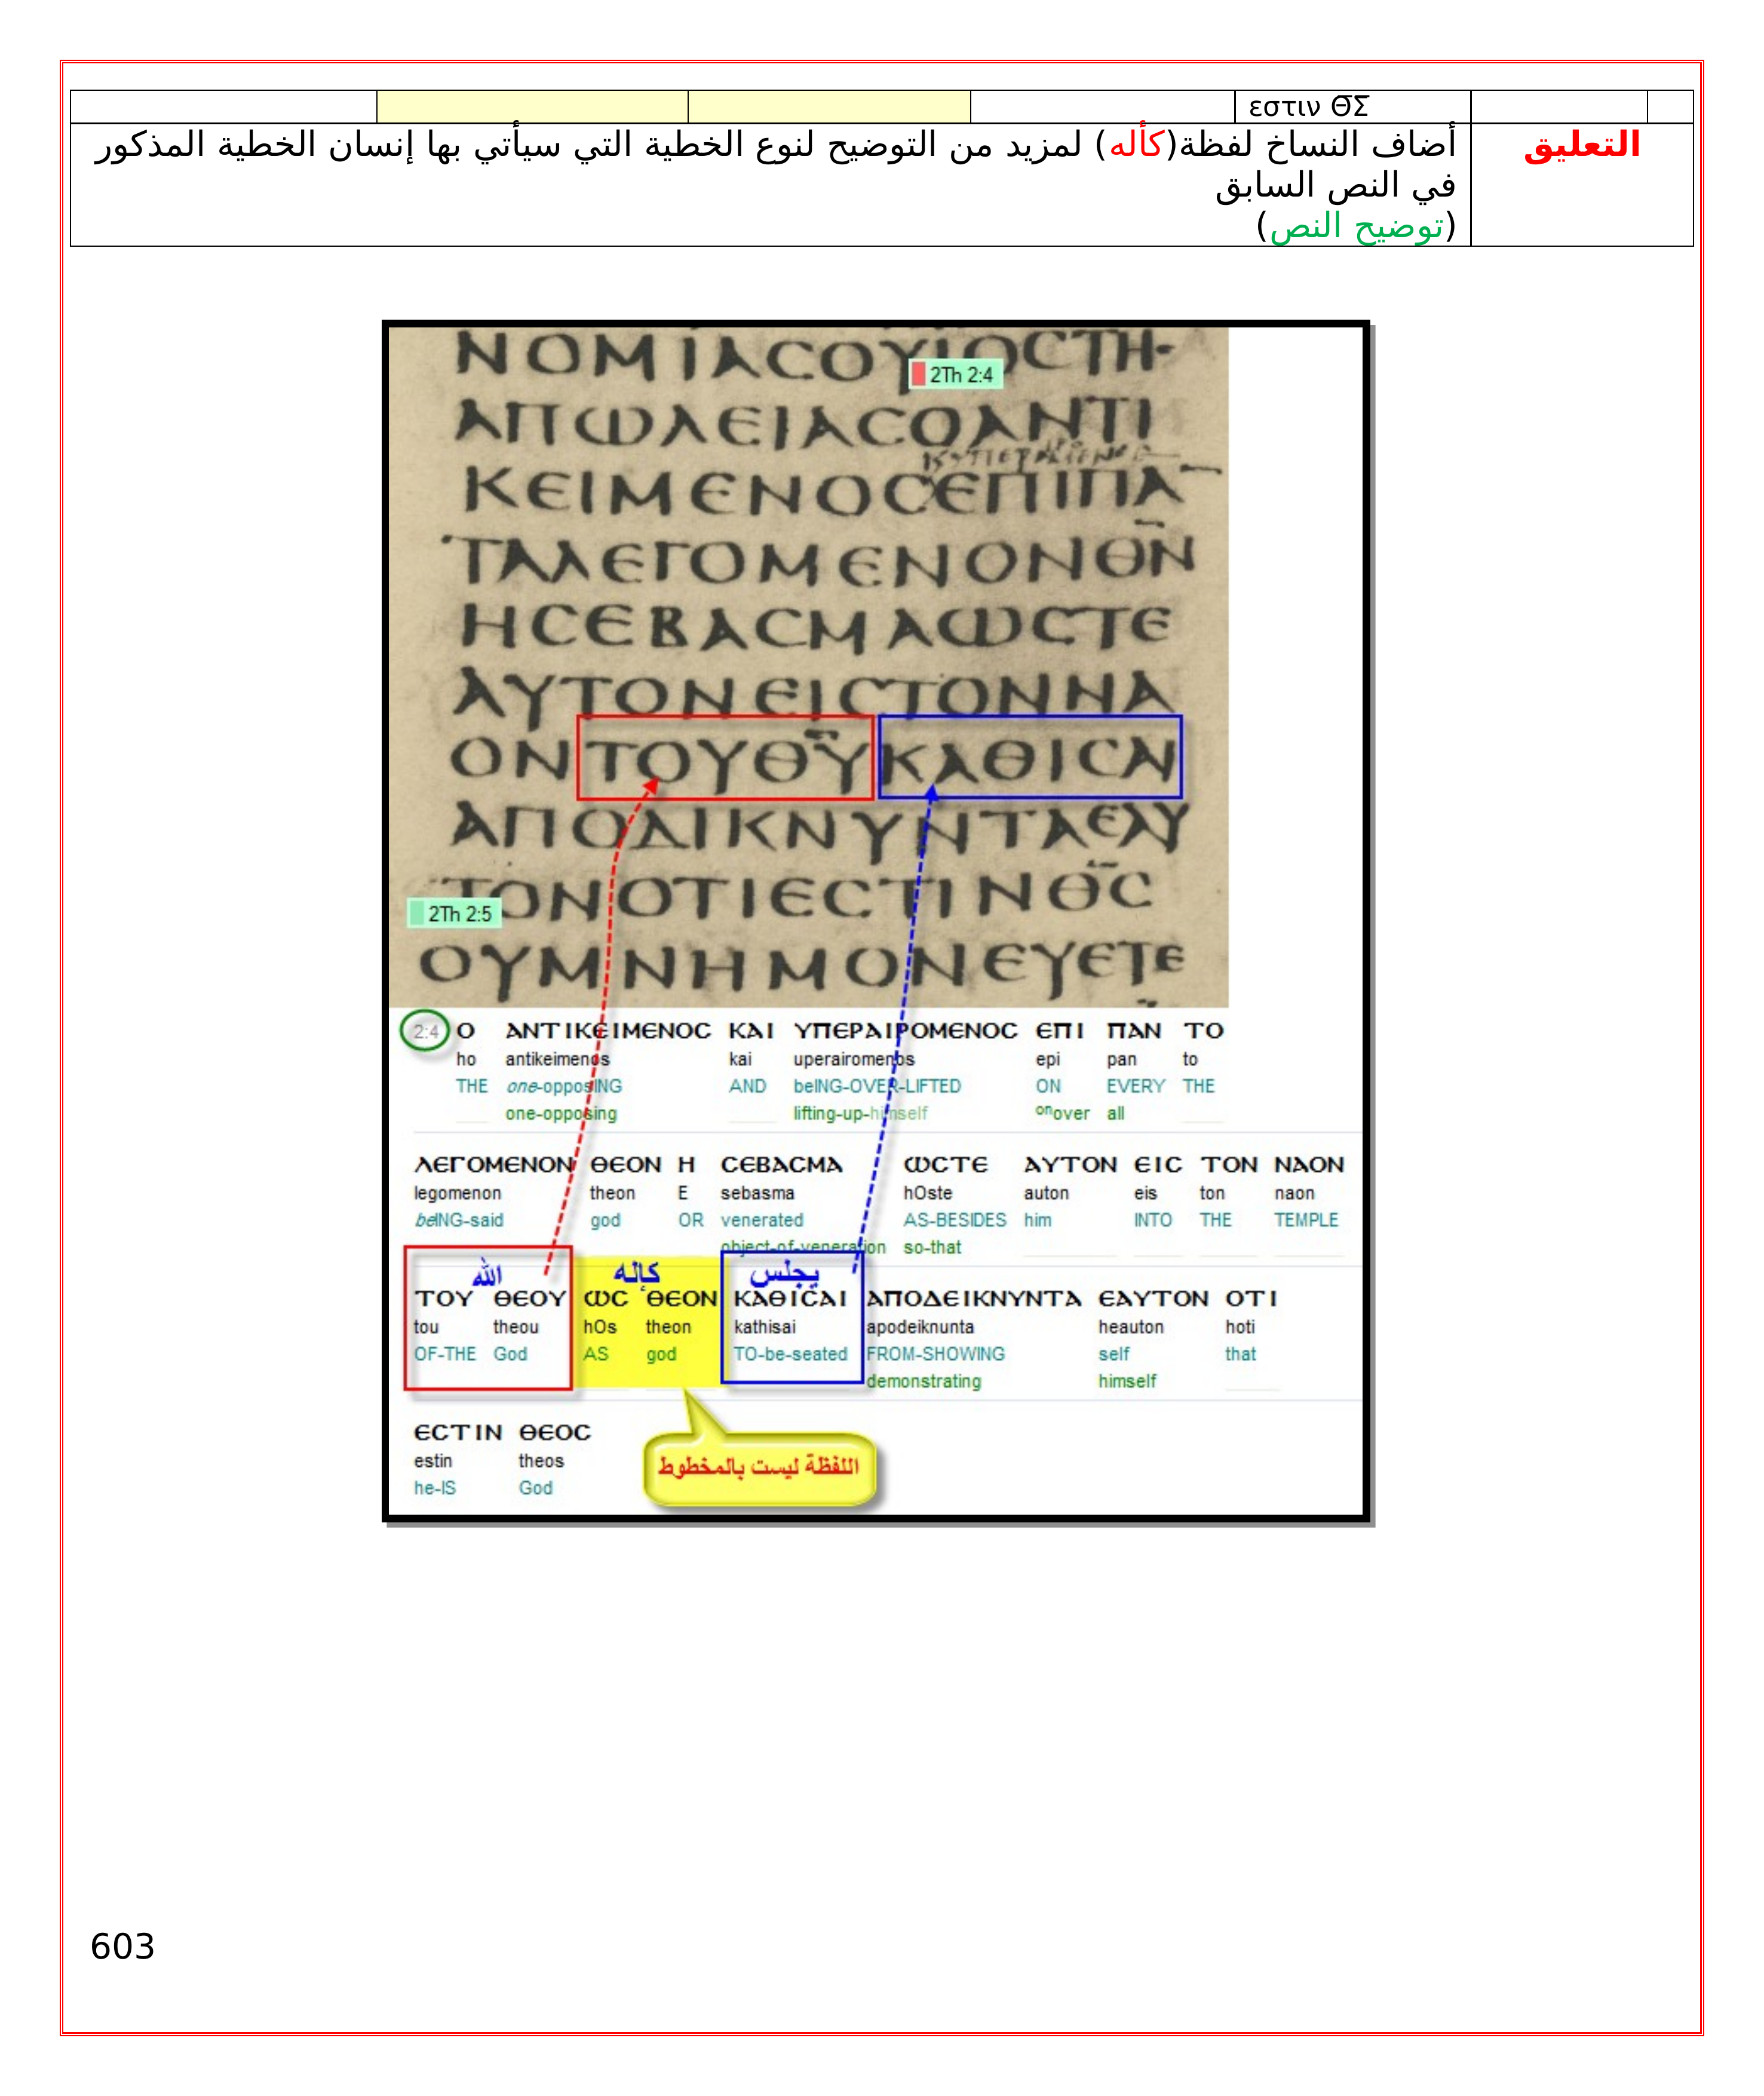 εστιν Θ̅Σ̅
التعليق
أضاف النساخ لفظة(كأله) لمزيد من التوضيح لنوع الخطية التي سيأتي بها إنسان الخطية المذكور
في النص السابق
(توضيح النص)
ΝΟΜΙΑCΟΥΙΟCΤΗ
2Th 2:4
ΑΠΩΛΕΙΑCΟΑΝΤΙ
ΚΕΙΜΕΝΟCΕΠΙΠΑ
ΤΑΛΕΓΟΜΕΝΟΝΘΝ
ΗCΕΒΑCΜΑΩCΤΕ
ΑΥΤΟΝΕΙCΤΟΝΝΑ
ΟΝΤΟΥΘΥΚΑΘΙCΑΙ
ΑΠΟΔΙΚΝΥΝΤΑΕΑΥ
ΤΟΝΟΤΙΕCΤΙΝΘC
2Th 2:5
ΟΥΜΝΗΜΟΝΕΥΕΤΕ
2:4 Ο ΑΝΤΙΚΕΙΜΕΝΟC ΚΑΙ ΥΠΕΡΑΙΡΟΜΕΝΟC ΕΠΙ ΠΑΝ ΤΟ
ho antikeimenos kai uperairomenos epi pan to
THE one-opposING AND beING-OVER-LIFTED ON EVERY THE
one-opposing lifting-up-himself onover all
ΛΕΓΟΜΕΝΟΝ ΘΕΟΝ Η CΕΒΑCΜΑ ΩCΤΕ ΑΥΤΟΝ ΕΙC ΤΟΝ ΝΑΟΝ
legomenon theon E sebasma hOste auton eis ton naon
beING-said god OR venerated AS-BESIDES him INTO THE TEMPLE
object-of-veneration so-that
الله كإله يجلس
ΤΟΥ ΘΕΟΥ ΩC ΘΕΟΝ ΚΑΘΙCΑΙ ΑΠΟΔΕΙΚΝΥΝΤΑ ΕΑΥΤΟΝ ΟΤΙ
tou theou hOs theon kathisai apodeiknunta heauton hoti
OF-THE God AS god TO-be-seated FROM-SHOWING self that
demonstrating himself
ΕCΤΙΝ ΘΕΟC
estin theos
he-IS God
اللفظة ليست بالمخطوط
603